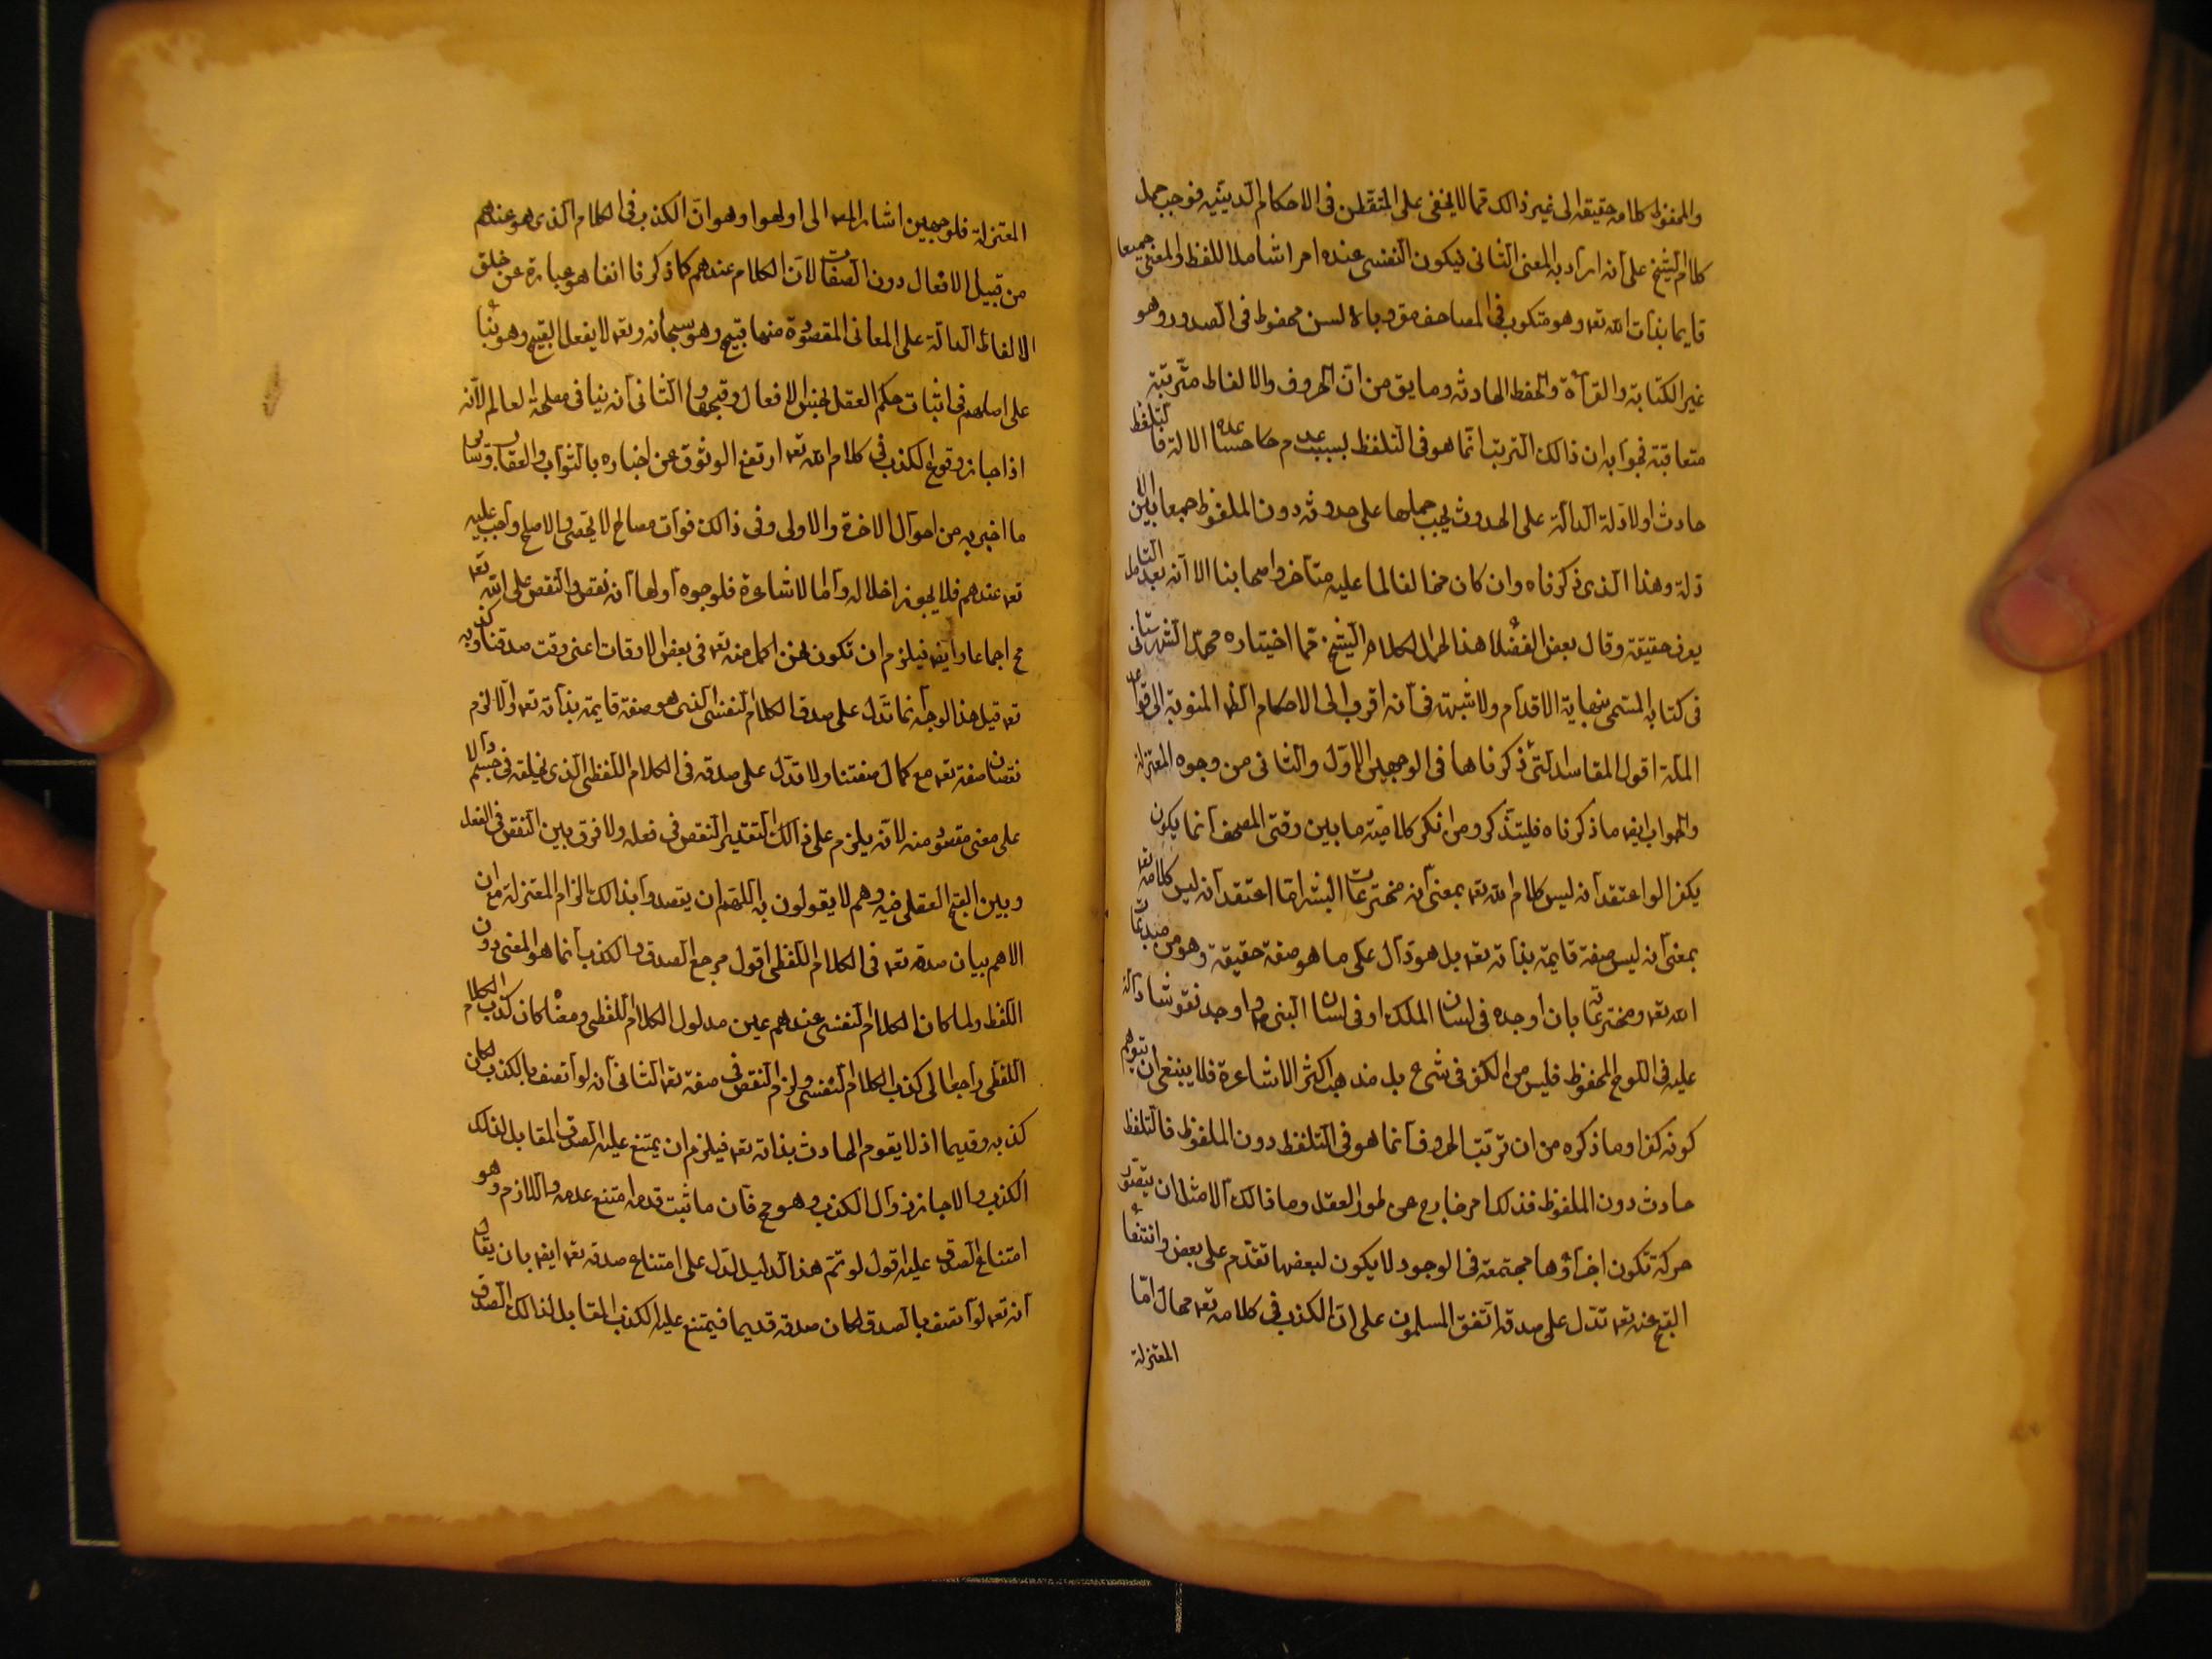 والمحفوظ كلامه حقيقة الى غير ذالك مما لا يخفى على المتفطن فى الاحكام الدينيه فوجب حمل
كلام الشيخ على انه اراد به المعنى الثانى فيكون النفسى عنده امرا شاملا للفظ والمعنى جميعا
قايما بذات الله تعه وهو مكتوب فى المصاحف مقروبالالسن محفوظ فى الصدور وهو
غير الكتابة والقرأة والحفظ الحادثه وما يق من ان الحروف والالفاظ مترتبة
متعاقبة فجوابه ان ذالك الترتب انما هو فى التلفظ بسبب عدم مساعدة الالة فالتلفظ
حادث والادلة الدالة على الحدوث يجب حملها على حدوثه دون الملفوظ جمعا بين الا
دلة وهذا الذى ذكرناه وان كان مخالفا لما عليه متأخروا اصحابنا الا انه بعد التامل
يعرف حقيقته وقال بعض الفضلا هذا المحمل لكلام الشيخ مما اختاره محمد الشهرستانى
فى كتابه المسمى بنهاية الاقدام ولا شبهة فى انه اقرب الى الاحكام الظه المنوبة الى قواعد
الملة اقول المفاسد التى ذكرناها فى الوجهين الاول والثانى من وجوه المعتزلة
والجواب ايضه ما ذكرناه فليتذكر ومن انكر كلامية ما بين دفتى المصحف انما يكون
يكفر لو اعتقد انه ليس كلام الله تعه بمعنى انه مخترعات البشر اما اعتقد انه ليس كلامه تعه
بمعنى انه ليس صفة قايمة بذاته تعه بل هو دال على ما هو صفة حقيقة وهو من مبدعات
الله تعه ومخترعاته بان اوجده فى لسان الملك او فى لسان النبى او اوجد نقوشا دالة
عليه فى اللوح المحفوظ فليس من الكفر فى شىء بل مذهب اكثر الاشاعرة فلا ينبغى ان يتوهم
كونه كفرا وما ذكره من ان ترتب الحروف انما هو فى التلفظ دون الملفوظ فالتلفظ
حادث دون الملفوظ فذلك امر خارج عن طور العقل وما ذالك الا مثل ان يتصور
حركة تكون اجزاؤها مجتمعة فى الوجود لا يكون لبعضها تقدم على بعض وانتفا
القبح عنه تعه تدل على صدقه اتفق المسلمون على ان الكذب فى كلامه تعه محال اما
المعتزلة
المعتزلة فلوجهين اشار المص الى اولهوا وهو ان الكذب فى الكلام الذى هو عندهم
من قبيل الافعال دون الصفات لان الكلام عندهم كما ذكرنا انفا هو عبارة عن خلق
الالفاظ الدالة على المعانى المقصودة منها قبيح وهو سبحانه وتعه لا يفعل القبيح وهو بنا
على اصلهم فى اثبات حكم العقل بحسن الافعال وقبحها والثانى انه ينافى مصلحة العالم لانه
اذا جاز وقوع الكذب فى كلام الله تعه ارتفع الوثوق عن اخباره بالثواب والعقاب وساير
ما اخبر به من احوال الاخرة والاولى وفى ذالك فوات مصالح لا تحصى والاصلح واجب عليه
تعه عندهم فلا يجوز اخلاله واما الاشاعرة فلوجوه اولها انه نقص والنقص على الله تعه
مح اجماعا وايضه فيلزم ان تكون نحن اكمل منه تعه فى بعض الاوقات اعنى وقت صدقنا وكذبه
تعه قيل هذا الوجه انما تدل على صدق الكلام النفسى الذى هو صفة قايمة بذاته تعه والا لزم
نقصان صفته تعه مع كمال صفتنا ولا تدل على صدقه فى الكلام اللفظى الذى يخلقه فى جسم دالا
على معنى مقصود منه لانه يلزم على ذالك التقدير النقص فى فعله ولا فرق بين النقص فى الفعل
وبين القبح العقلى فيه وهم لا يقولون به اللهم ان يقصدوا بذالك الزام المعتزلة مع ان
الاهم بيان صدقه تعه فى الكلام اللفظى اقول مرجع الصدق والكذب انما هو المعنى دون
اللفظ ولما كان الكلام النفسى عندهم عين مدلول الكلام اللفظى ومعناه كان كذب الكلام
اللفظى راجعا الى كذب الكلام النفسى ولزم النقص فى صفته تعه الثانى انه لو اتصف بالكذب لكان
كذبه وقديما اذ لا يقوم الحادث بذاته تعه فيلزم ان يمتنع عليه الصدق المقابل لذلك
الكذب والا جاز زوال الكذب وهو مح فان ما ثبت قدمه امتنع عدمه واللازم وهو
امتناع الصدق عليه اقول لو تم هذا الدليل لدل على امتناع صدقه تعه ايضه بان يقال
انه تعه لو اتصف بالصدق لكان صدقه قديما فيمتنع عليه الكذب المقابل لذالك الصدق